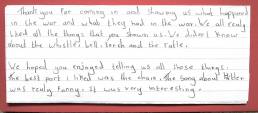 Thank you for coming in and showing us what happened
in the war and what they had in the war. We all realy
liked all the things that you shown us. We didn't know
about the whistle, bell, torch and the ratle.
We hoped you enjoyed telling us all those things.
the best part i liked was the chair. The song about Hitler
was realy funny. It was very interesting.